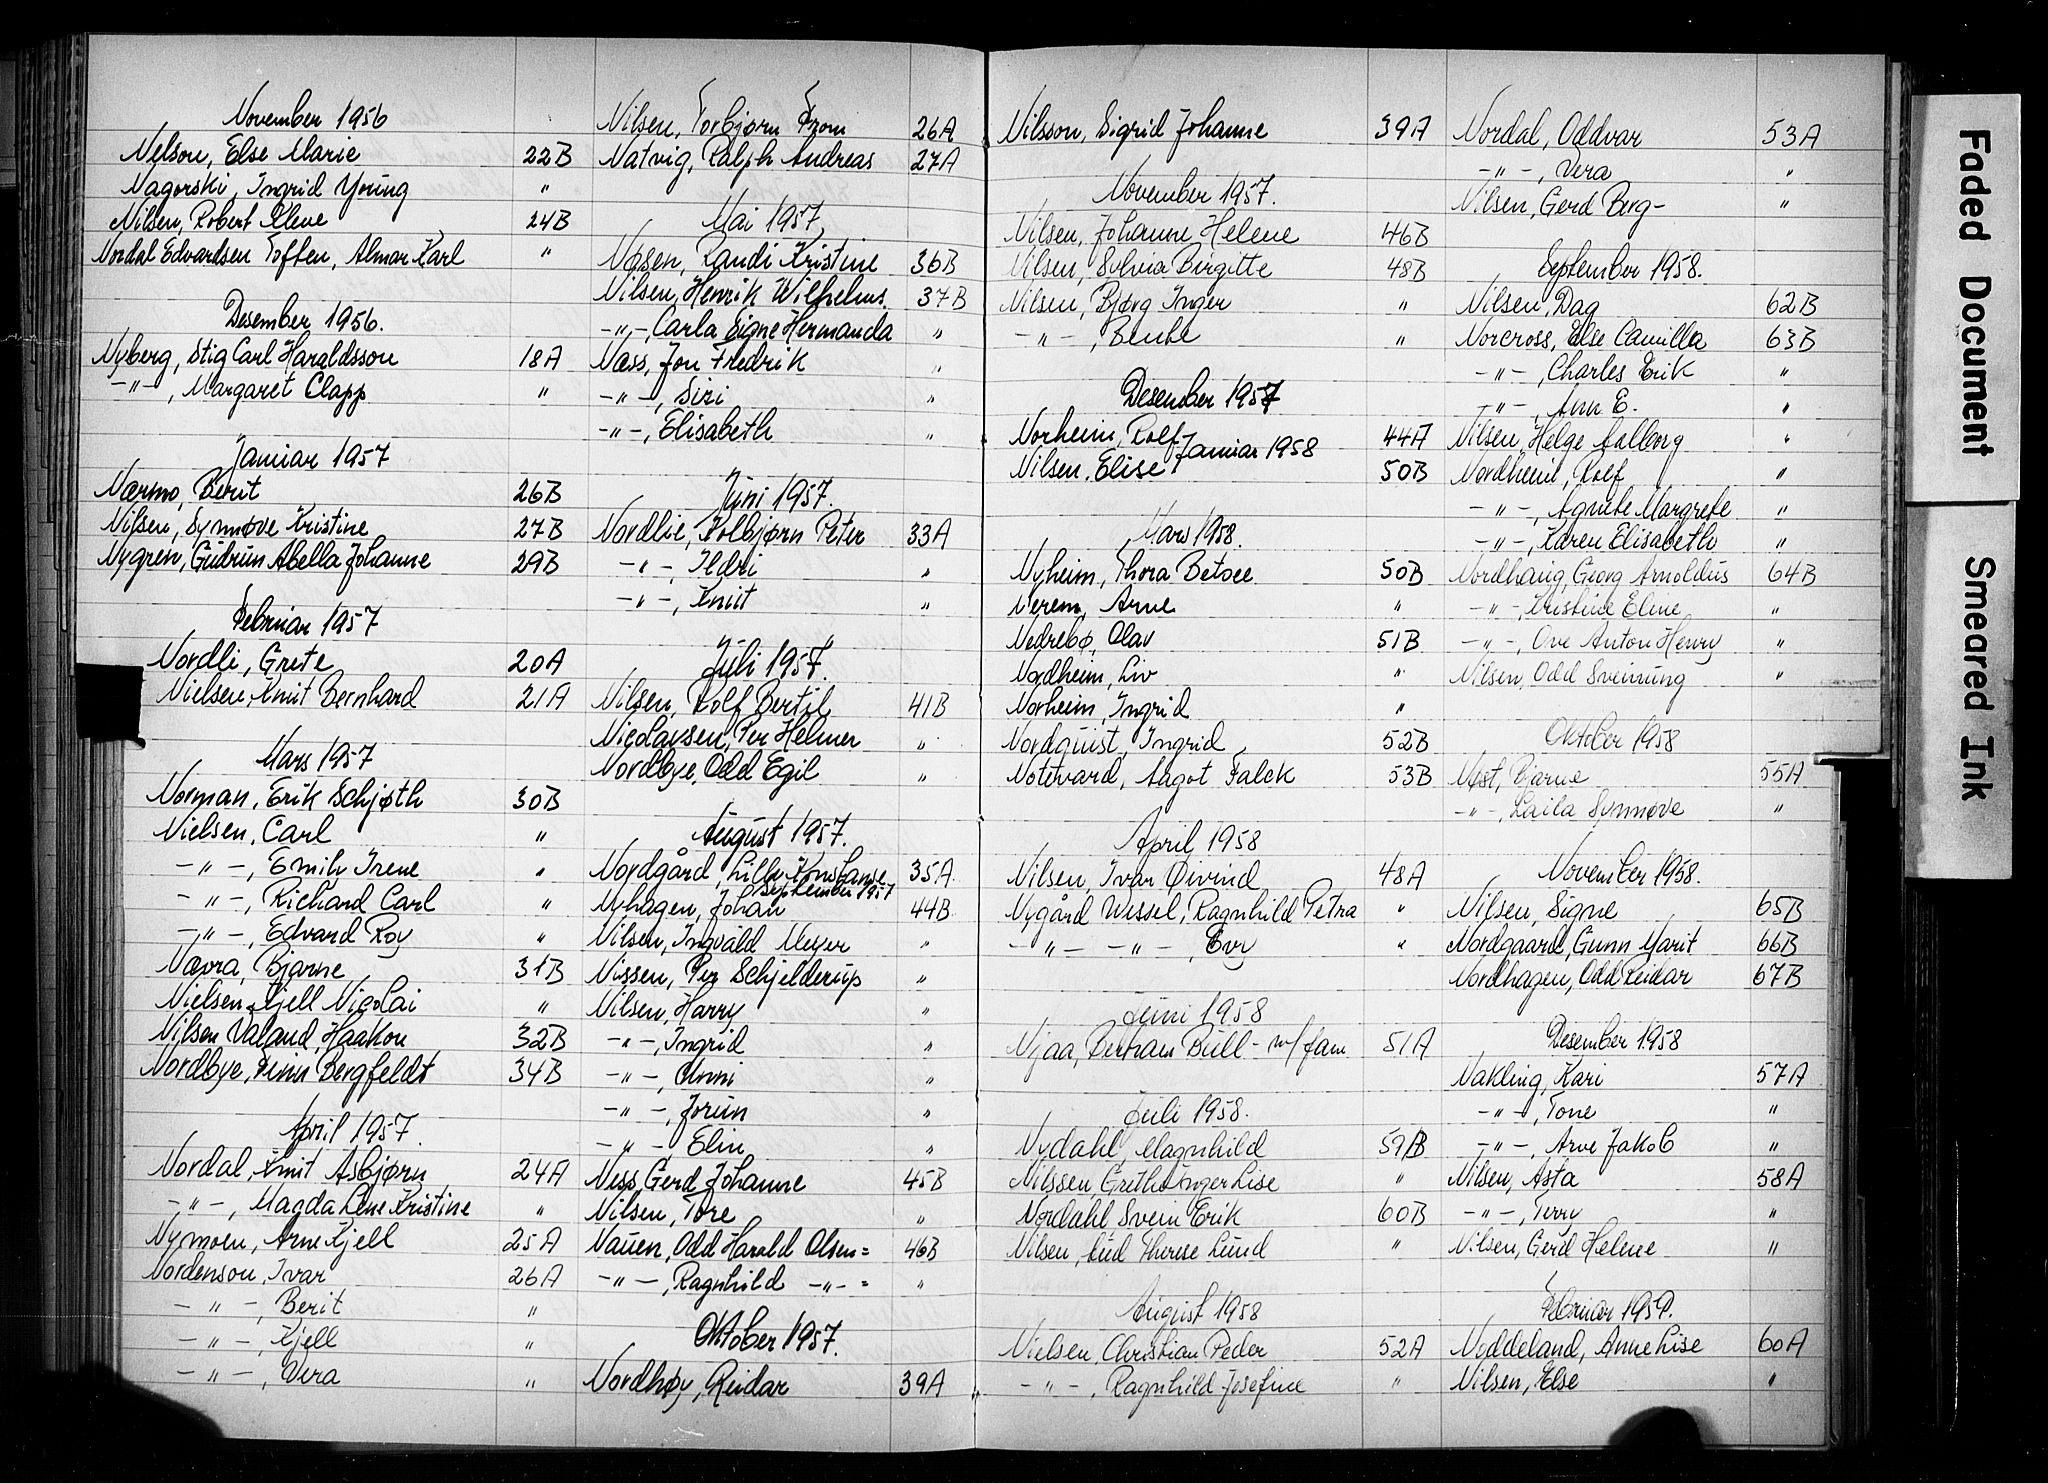 November 1956
Nelson, Else Marie 22B
Nagorski, Ingrid Young "
Nilsen, Robert Elene 24B
Nordal Edvardsen Toften, Almar Karl "
Desember 1956.
Nyberg, Stig Carl Haraldsson 18A
-"-, Margaret Clapp "
Januar 1957
Nærmo, Berit 26B
Nilsen, Synnøve Kristine 27B
Nygren, Gudrun Abella Johanne 29B
Februar 1957
Nordli, Grete 20A
Nielsen, Knut Bernhard 21A
Mars 1957
Norman, Erik Schjøth 30B
Nielsen, Carl "
-"-, Emily Irene "
-"-, Richard Carl "
-"-, Edvard Roy "
Nævra, Bjarne 31B
Nielsen, Kjell Nicolai "
Nilsen Valand, Haakon 32B
Nordbye, Finn Bergfeldt 34B
April 1957.
Nordal, Knut Asbjørn 24A
-"-, Magda Lene Kristine "
Nymoen, Arne Kjell 25A
Nordenson, Ivar 26A
-"-, Berit "
-"-, Kjell "
-"-, Vera "
Nilsen, Torbjørn From 26A
Natvig, Ralph Andreas 27A
Mai 1957
Nøsen, Randi Kristine 36B
Nilsen, Henrik Wilhelms. 37B
-"-, Carla Signe Hermanda "
Næss, Jon Fredrik "
-"-, Siri "
-"-, Elisabeth "
Juni 1957.
Nordlie, Kolbjørn Peter 33A
-"-, Ildri "
-"-, Knut "
Juli 1957.
Nilsen, Rolf Bertil 41B
Nicolaysen, Per Helmer "
Nordbye, Odd Egil "
August 1957.
Nordgård, Lilly Konstanse 35A
September 1957
Nyhagen, Johan 44B
Nilsen, Ingvald Meyer "
Nissen, Per Schjelderup "
Nilsen, Harry "
-"-, Ingrid "
-"-, Anni "
-"-, Jorun "
-"-, Elin "
Ness, Gerd Johanne 45B
Nilsen, Tore "
Nauen, Odd Harald Olsen= 46B
-"-, Ragnhild -"-= "
Oktober 1957.
Nordhøy, Reidar 39A
Nilsson, Sigrid Johanne 39A
November 1957.
Nilsen, Johanne Helene 46B
Nilsen, Sylvia Birgitte 48B
Nilsen, Bjørg Inger "
-"-, Bente "
Desember 1957
Norheim, Rolf 44A
Januar 1958
Nilsen, Elise 50B
Mars 1958.
Nyheim, Thora Betsee 50B
Nerem, Arne "
Nedrebø, Olav 51B
Nordheim, Liv "
Norheim, Ingrid "
Nordquist, Ingrid 52B
Notevard, Aagot Falck 53B
April 1958
Nilsen, Ivar Øivind 48A
Nygård Wessel, Ragnhild Petra "
-"- -"-, Evy "
Juni 1958
Njaa, Bertram Bull- m/fam 51A
Juli 1958.
Nydahl, Magnhild 59B
Nilssen, Grethe Inger Lise "
Nordahl Svein Erik 60B
Nilsen, Aud Therese Lund "
August 1958
Nielsen, Christian Peder 52A
-"-, Ragnhild Josefine "
Nordal, Oddvar 53A
-"-, Vera "
Nilsen, Gerd Berg- "
September 1958.
Nilsen, Dag 62B
Norcross, Else Camilla 63B
-"-, Charles Erik "
-"-, Ann E. "
Nilsen, Helge Aalborg "
Nordheim, Rolf "
-"-, Agnete Margrete "
-"-, Karen Elisabeth "
Nordhaug, Georg Arnoldus 64B
-"-, Kristine Eline "
-"-, Ove Anton Henry "
Nilsen, Odd Sveinung "
Oktober 1958
Nøst, Bjarne 55A
-"-, Laila Synnøve "
November 1958.
Nilsen, Signe 65B
Nordgaard, Gunn Marit 66B
Nordhagen, Odd Reidar 67B
Desember 1958
Nakling, Kari 57A
-"-, Tone "
-"-, Arve Jakob "
Nilsen, Asta 58A
-"-, Terry "
Nilsen, Gerd Helene "
Februar 1959.
Noddeland, Anne Lise 60A
Nilsen, Else "
Faded Document
Smeared Ink